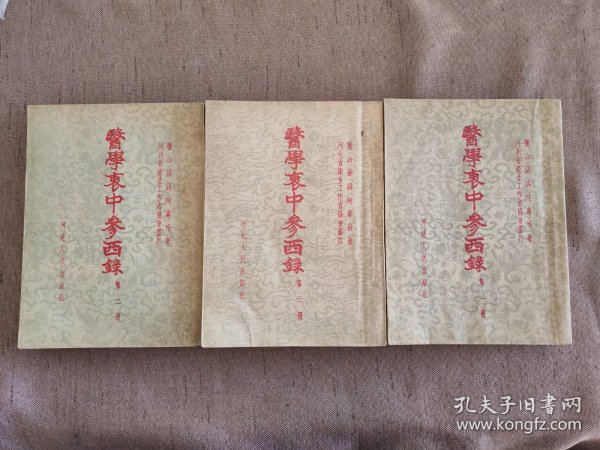 鹽山張錫純壽甫著
河北省衛生工作者協會審訂
醫學衷中參西錄
第二冊
河北人民出版社
鹽山張錫純壽甫著
河北省衛生工作者協會審訂
醫學衷中參西錄
第三冊
河北人民出版社
鹽山張錫純壽甫著
河北省衛生工作者協會審訂
醫學衷中參西錄
第一冊
河北人民出版社
孔夫子旧书网
www.kongfz.com